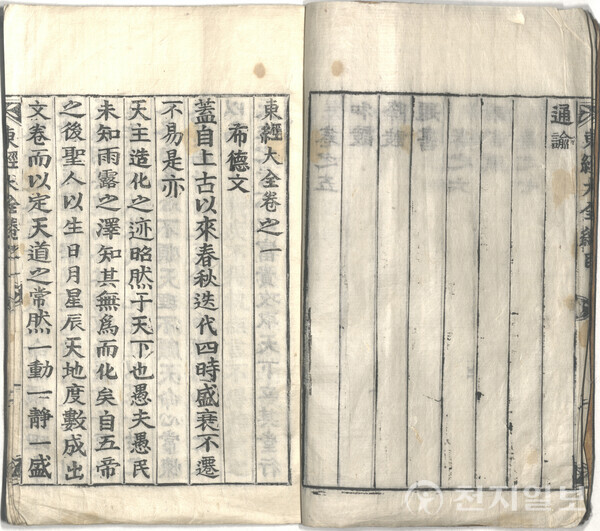 東經大全
通諭
東經大全卷之一
布德文
盖自上古以來春秋迭代四時盛衰不遷
不易是亦
天主造化之迹昭然于天下也愚夫愚民
未知雨露之澤知其無爲而化矣自五帝
之後聖人以生日月星辰天地度數成出
文卷而以定天道之常然一動一靜一盛
東經大全卷之一
천지일보